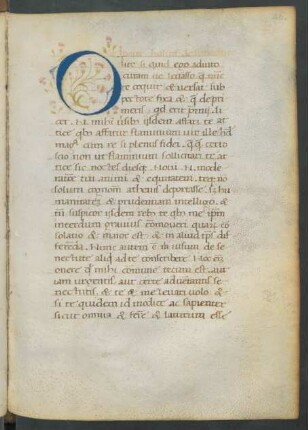 O tite si quid ego adiuto
curam ve leuasso q̄ nūc
te coquit & uersat sub
pectore fixa & q̄ depri
meris. qd erit p̄mij. li
cet. N. mihi uersib; isdem affari te at
tice qb; affatur flamininum uir ille haud
magͣ cum re sꝫ plenus fidei. q̄q̄ certo
scio non ut flamininum sollicitari te at
tice sic noctesq; diesq;. Noui .N. mode
rationem tui animi & equitatem. teq; nō
solum cognom̄ athenis deportasse sꝫ hu
manitatem & prudentiam intelligo. &
tam̄ suspicor iisdem rebꝫ te qb; me ip̄m
interdum grauius commoueri quarū cō
solatio & maior est & in aliud tp̄s dif
ferēda. Nunc autem ē m̄ uisum de se
nectute aliqd ad te conscribere. Hoc .en.
onere qd mihi comune tecum est aut
iam urgentis aut certe aduentantis se
nectutis & te & me leuari uolo. &
si te quidem id modice ac sapienter
sicut omnia & ferre & laturum esse